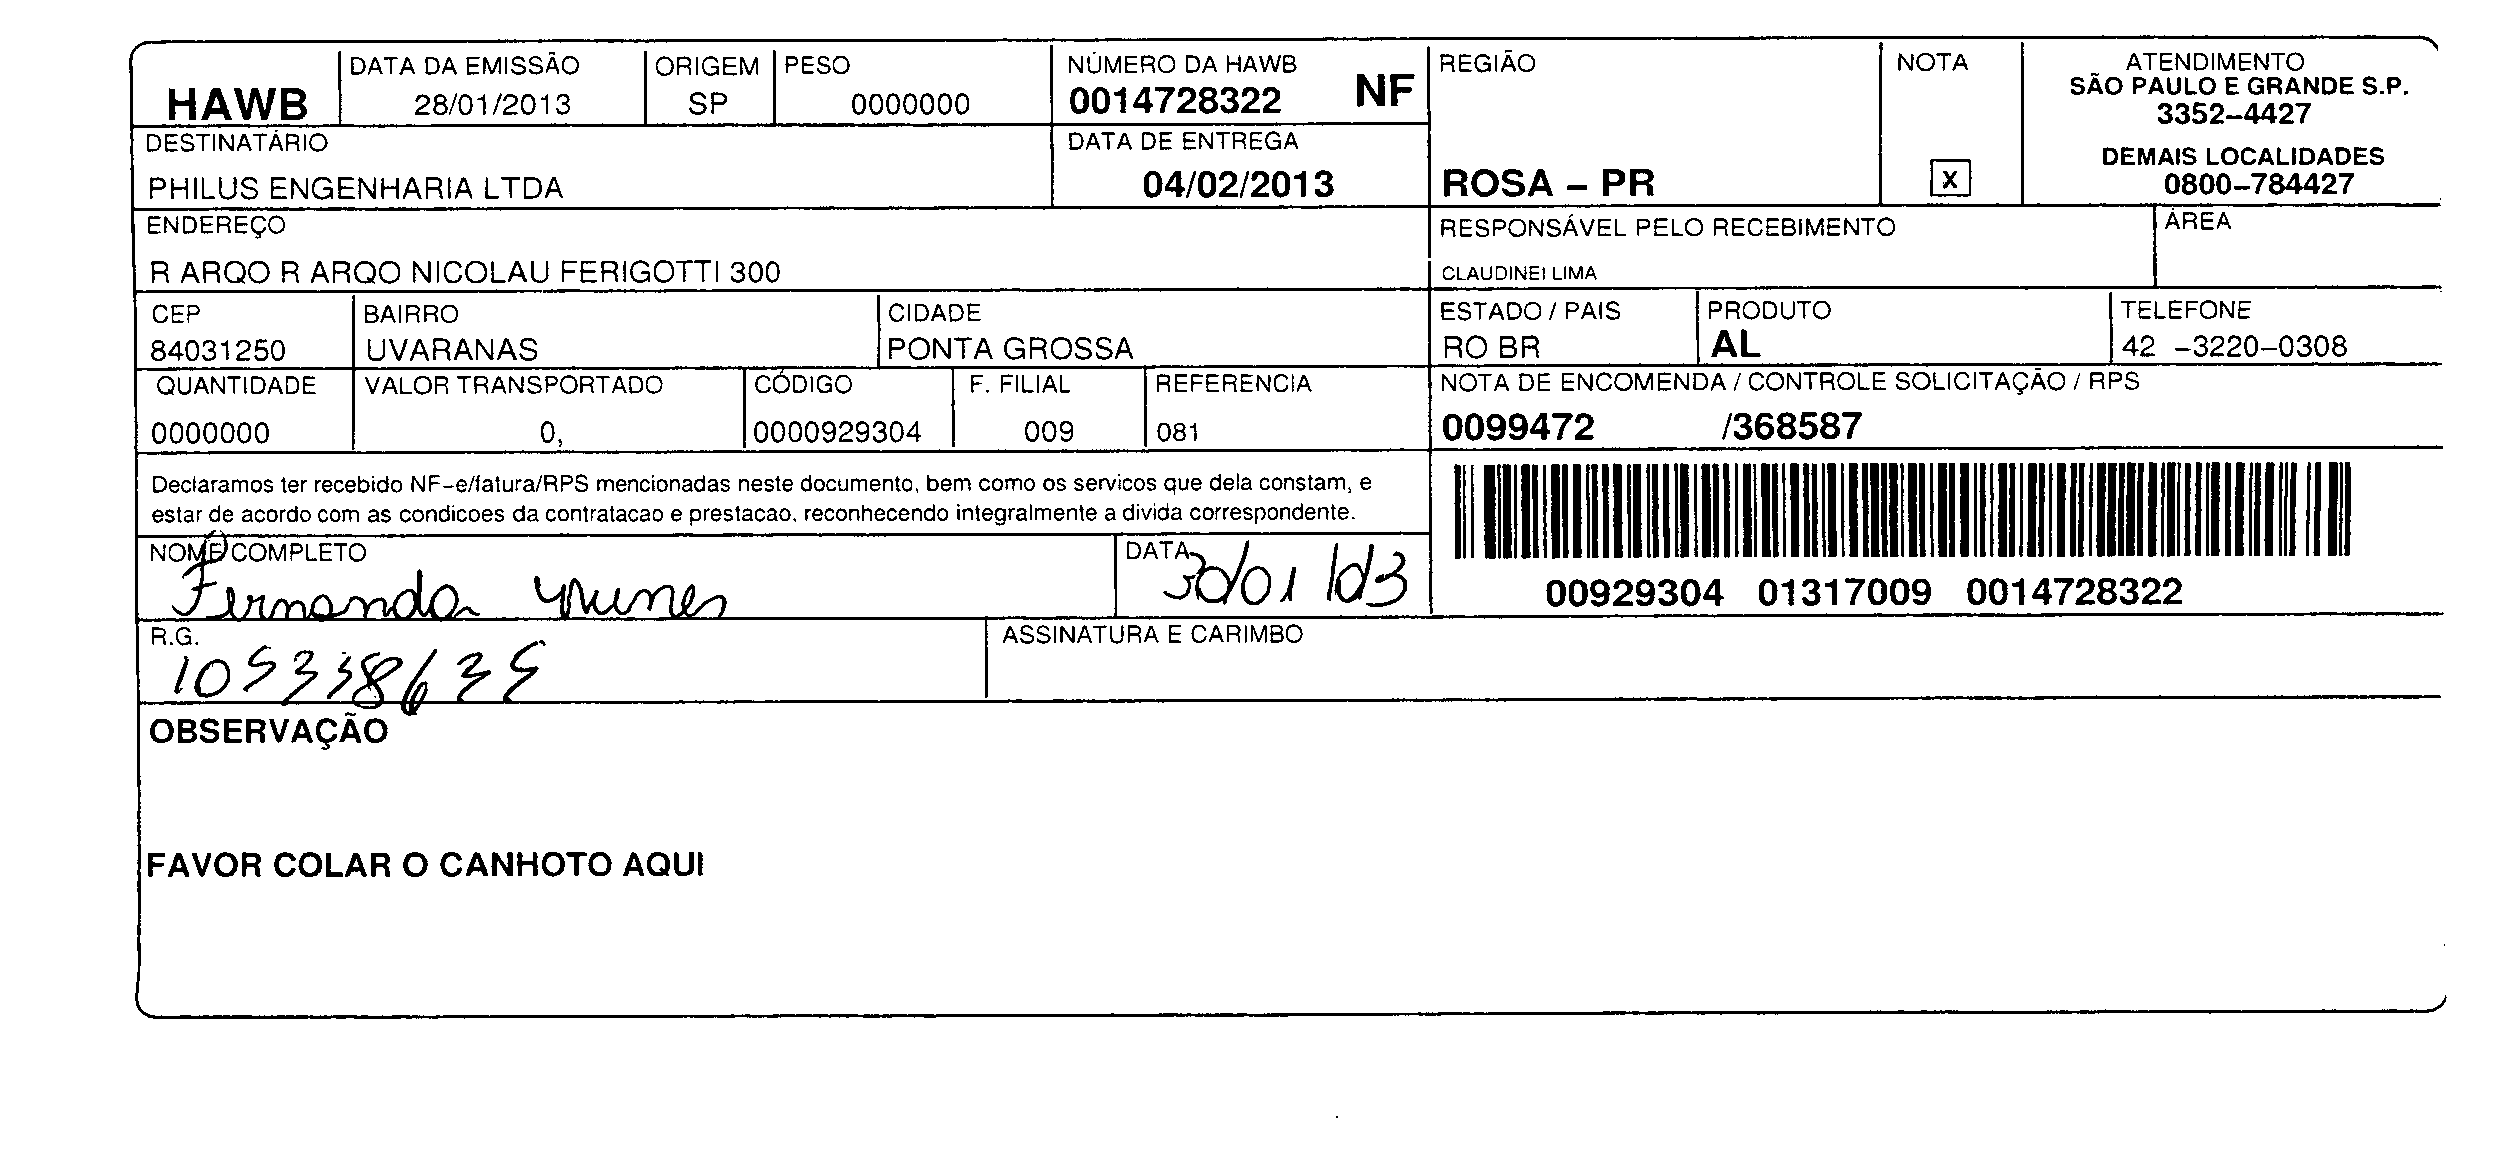 HAWB
DATA DA EMISSÃO
28/01/2013
ORIGEM
SP
PESO
0000000
NÚMERO DA HAWB
0014728322 NF
REGIÃO
ROSA – PR
NOTA
X
ATENDIMENTO
SÃO PAULO E GRANDE S.P.
3352–4427
DEMAIS LOCALIDADES
0800–784427
DESTINATÁRIO
PHILUS ENGENHARIA LTDA
DATA DE ENTREGA
04/02/2013
ENDEREÇO
R ARQO R ARQO NICOLAU FERIGOTTI 300
RESPONSÁVEL PELO RECEBIMENTO
CLAUDINEI LIMA
ÁREA
CEP
84031250
BAIRRO
UVARANAS
CIDADE
PONTA GROSSA
ESTADO / PAIS
RO BR
PRODUTO
AL
TELEFONE
42 –3220–0308
QUANTIDADE
0000000
VALOR TRANSPORTADO
0,
CÓDIGO
0000929304
F. FILIAL
009
REFERENCIA
081
NOTA DE ENCOMENDA / CONTROLE SOLICITAÇÃO / RPS
0099472 /368587
Declaramos ter recebido NF–e/fatura/RPS mencionadas neste documento, bem como os servicos que dela constam, e
estar de acordo com as condicoes da contratacao e prestacao, reconhecendo integralmente a divida correspondente.
00929304 01317009 0014728322
NOME COMPLETO
Fernanda Nunes
DATA
30/01
R.G.
ASSINATURA E CARIMBO
OBSERVAÇÃO
FAVOR COLAR O CANHOTO AQUI